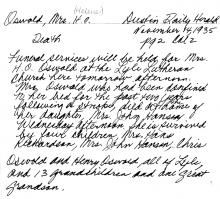 (Helena)
Oswald, Mrs. H.O.
Dustin Daily Herald
November 14, 1935
Death
pg 2 col 2
Funeral services will be held for Mrs.
H.O. Oswald at the Lyle Lutheran
Church here tomorrow afternoon.
Mrs. Oswald who had been confined
to her bed for the past two years
following a stroke, died at home of
her daughter, Mrs. John Hansen
Wednesday afternoon. She is survived
by four children, Mrs. Hans
Rickardson, Mrs. John Hansen, Chris
Oswald and Henry Oswald all of Lyle,
and 13 grandchildren and one great
grandson.